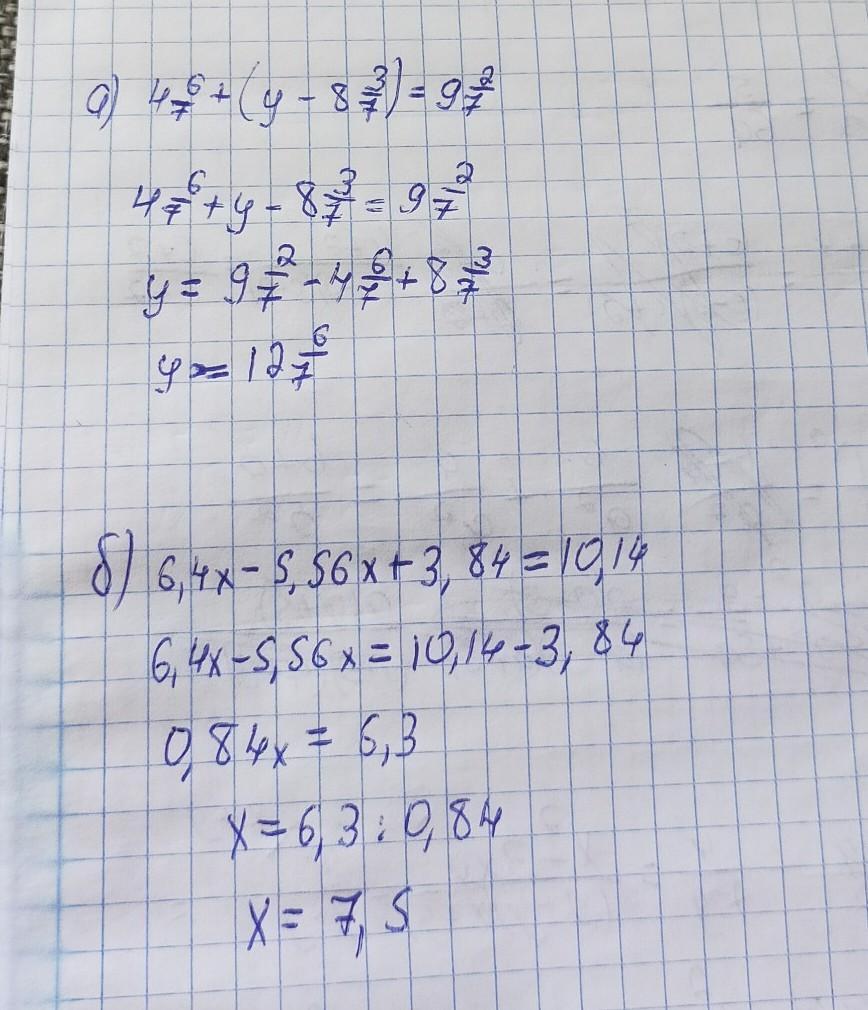 а) 4 6/7 + (y - 8 3/7) = 9 2/7
4 6/7 + y - 8 3/7 = 9 2/7
y = 9 2/7 - 4 6/7 + 8 3/7
y = 12 6/7
б) 6,4x - 5,56x + 3,84 = 10,14
6,4x - 5,56x = 10,14 - 3,84
0,84x = 6,3
x = 6,3 : 0,84
x = 7,5